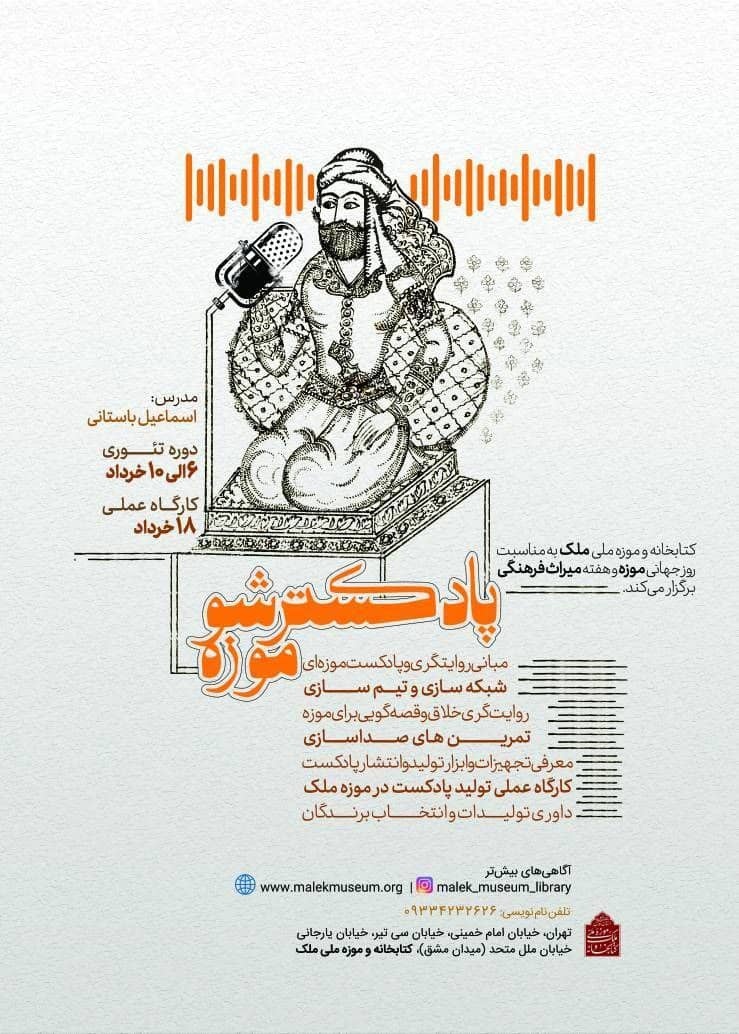 مدرس:
اسماعیل باستانی
دوره تئـــوری
۶ الی ۱۰ خرداد
کارگاه عملی
۱۸ خرداد
کتابخانه و موزه ملی ملک به مناسبت
روز جهانی موزه و هفته میراث فرهنگی
برگزار می‌کند.
پادکستر شو
موزه
مبانی روایتگری و پادکست موزه‌ای
شبکه سازی و تیـم ســازی
روایت‌گری خلاق و قصه گویی برای موزه
تمریـــن های صـداسـازی
معرفی تجهیزات و ابزار تولید و انتشار پادکست
کارگاه عملی تولید پادکست در موزه ملک
داوری تولیــدات و انتخـاب برنــدگان
آگاهی‌های بیش‌تر
www.malekmuseum.org | malek_museum_library
تلفن نام نویسی: ۰۹۳۳۴۲۳۲۶۲۶
تهران، خیابان امام خمینی، خیابان سی تیر، خیابان یارجانی
خیابان ملل متحد (میدان مشق)، کتابخانه و موزه ملی ملک